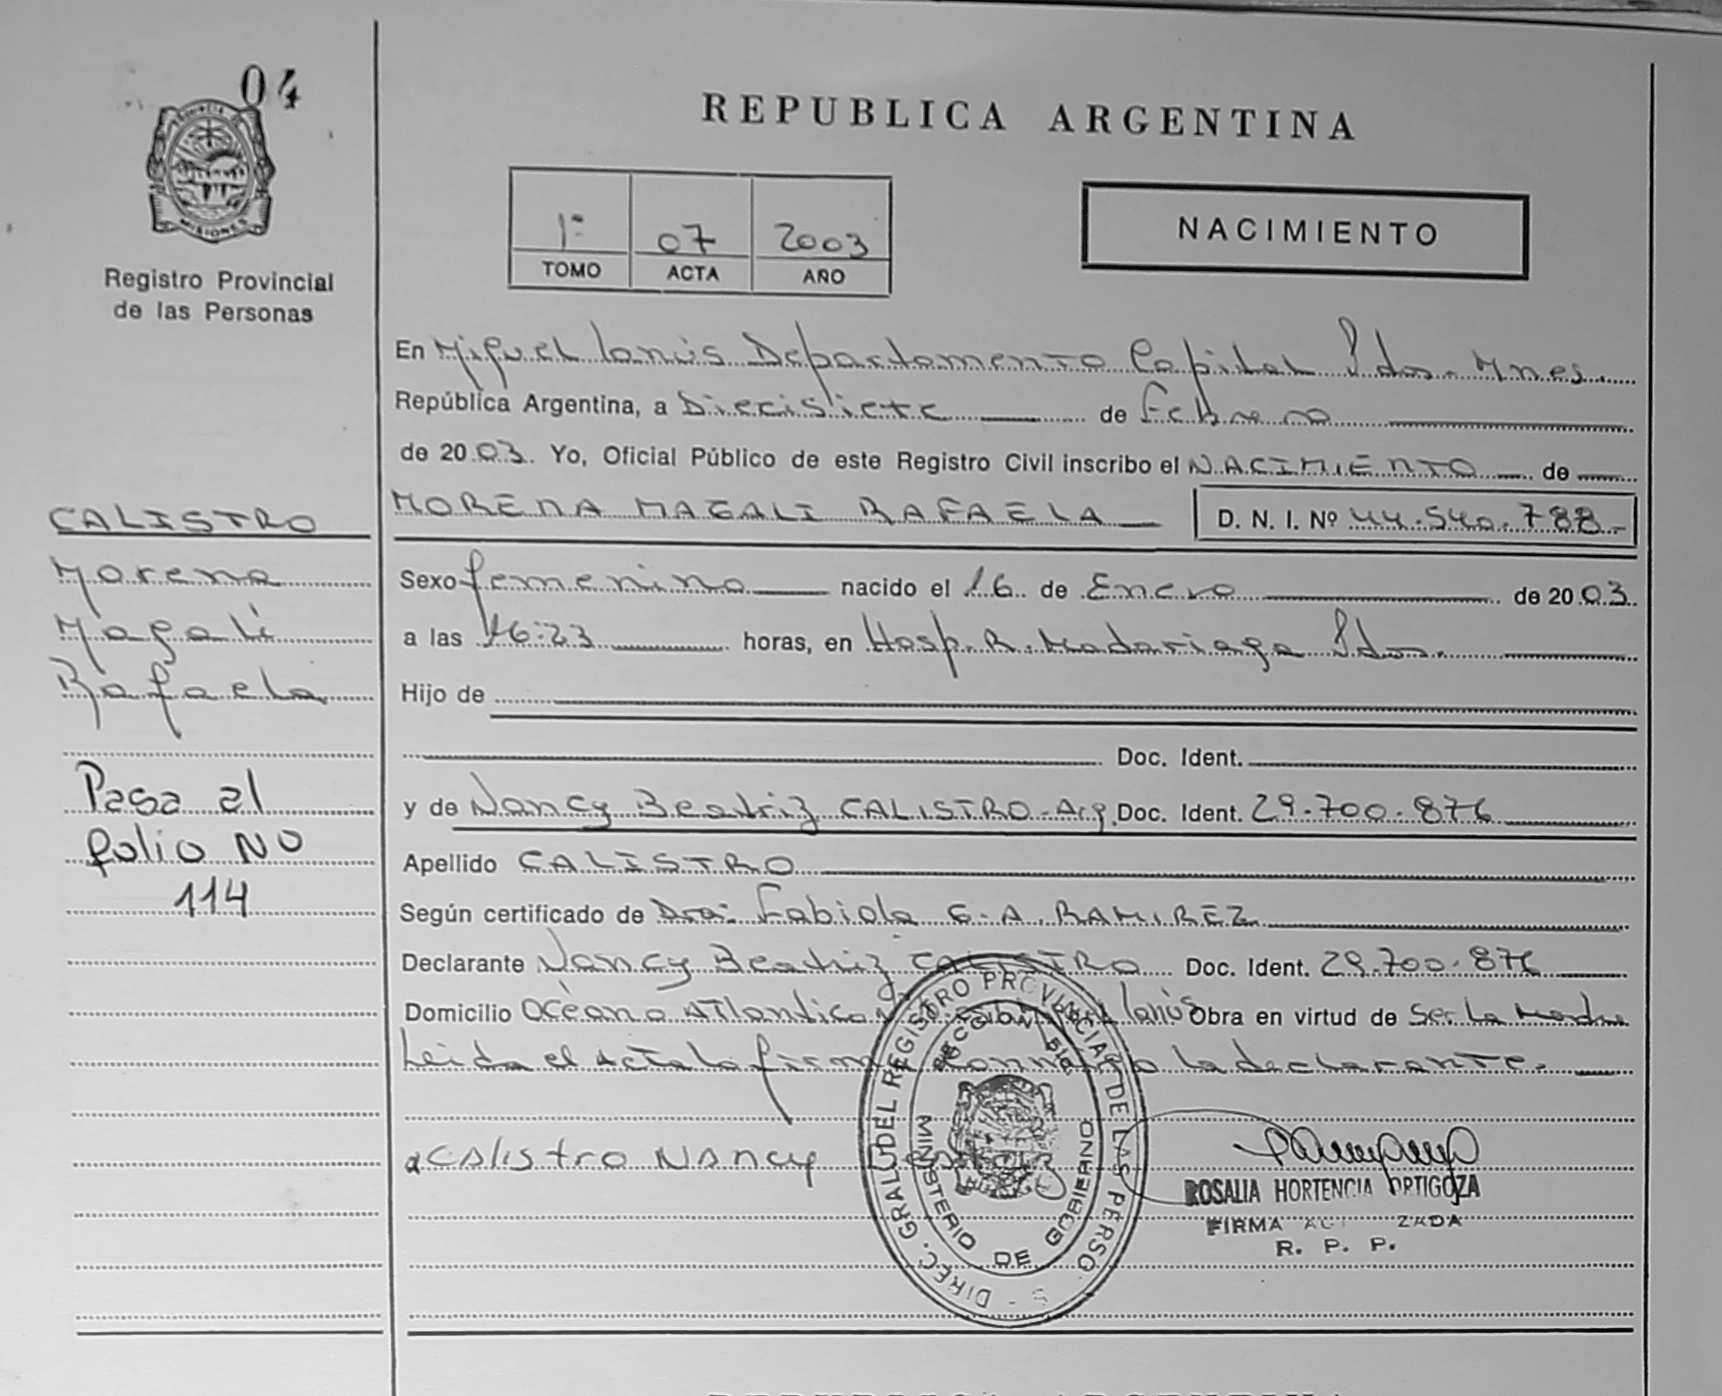 04
MISIONES
Registro Provincial
de las Personas
REPUBLICA ARGENTINA
1º 07 2003
TOMO ACTA AÑO
NACIMIENTO
En Miguel Lanús Departamento Capital Pdos. Mnes.
República Argentina, a Diecisiete de Febrero
de 2003. Yo, Oficial Público de este Registro Civil inscribo el NACIMIENTO de
MORENA MAGALI RAFAELA D. N. I. Nº 44.540.788-
CALISTRO
Morena
Magalí
Rafaela
Pasa al
folio NO
114
Sexo femenino nacido el 16 de Enero de 2003.
a las 16:23 horas, en Hosp. R. Madariaga Pdos.
Hijo de
Doc. Ident.
y de Nancy Beatriz CALISTRO-Arg. Doc. Ident. 29.700.876
Apellido CALISTRO
Según certificado de Dra: Fabiola G. A. RAMIREZ
Declarante Nancy Beatriz CALISTRO Doc. Ident. 29.700.876
Domicilio Océano Atlantico Lanús Obra en virtud de Ser La Madre
Leida el Acta la firma conmigo la declarante.
Calistro Nancy
DIREC. GRAL. DEL REGISTRO PROVINCIAL DE LAS PERSO S
MINISTERIO DE GOBIERNO
ROSALIA HORTENCIA ORTIGOZA
FIRMA
R. P. P.
REPUBLICA ARGENTINA